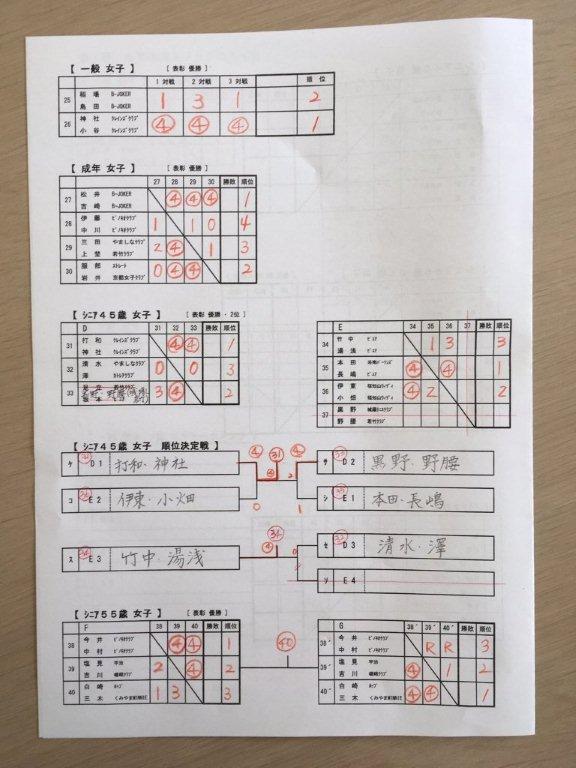 【 一般 女子 】 [ 表彰 優勝 ]
1 対戦 2 対戦 3 対戦 順 位
25 稲 場 B-JOKER 1 3 1 2
島 田 B-JOKER
26 神 社 ｸﾚｲﾝｽﾞｸﾗﾌﾞ ④ ④ ④ 1
小 谷 ｸﾚｲﾝｽﾞｸﾗﾌﾞ
【 成年 女子 】 [ 表彰 優勝 ]
27 28 29 30 勝敗 順位
27 松 井 B-JOKER ④ ④ ④ 1
吉 崎 B-JOKER
28 伊 藤 ﾋﾟﾉｷｵｸﾗﾌﾞ 1 1 0 4
中 川 ﾋﾟﾉｷｵｸﾗﾌﾞ
29 三 田 やましなｸﾗﾌﾞ 2 ④ 1 3
上 埜 若竹ｸﾗﾌﾞ
30 服 部 ｽﾄﾚｰﾄ 0 ④ ④ 2
岩 井 京都女子ｸﾗﾌﾞ
【 ｼﾆｱ４５歳 女子 】 [ 表彰 優勝 ・ 2位 ]
D 31 32 33 勝敗 順位
31 打 和 ｸﾚｲﾝｽﾞｸﾗﾌﾞ ④ ④ 1
神 社 ｸﾚｲﾝｽﾞｸﾗﾌﾞ
32 清 水 やましなｸﾗﾌﾞ 0 0 3
澤 ｶﾄﾚｱｸﾗﾌﾞ
33 若竹ｸﾗﾌﾞ 3 ④ 2
黒野・野腰
E 34 35 36 37 勝敗 順位
34 竹 中 ﾋﾟｭｱ 1 3 3
湯 浅 ﾋﾟｭｱ
35 本 田 ④ ④ 1
長 嶋 ﾋﾟｭｱ
36 伊 東 福知山ﾚﾃﾞｨｽ ④ 2 2
小 畑 福知山ﾚﾃﾞｨｽ
37 黒 野
野 腰 若竹ｸﾗﾌﾞ
【 ｼﾆｱ４５歳 女子 順位決定戦 】
ｹ 31 D1 打和・神社 ④ 31 ④ ④ 2 ｻ 33 D2 黒野・野腰
ｺ 36 E2 伊東・小畑 0 1 ｼ 35 E1 本田・長嶋
ｽ 34 E3 竹中・湯浅 34 ④ 0 ｾ 32 D3 清水・澤
ｿ E4
【 ｼﾆｱ５５歳 女子 】 [ 表彰 優勝 ]
F 38 39 40 勝敗 順位
38 今 井 ﾋﾟﾉｷｵｸﾗﾌﾞ ④ ④ 1
中 村 ﾋﾟﾉｷｵｸﾗﾌﾞ
39 塩 見 宇治 2 ④ 2
吉 川 嵯峨ｸﾗﾌﾞ
40 白 崎 ﾎｯﾌﾟ 1 3 3
三 木 くみやま町華区
40
G 38' 39' 40' 勝敗 順位
38' 今 井 ﾋﾟﾉｷｵｸﾗﾌﾞ R R 3
中 村 ﾋﾟﾉｷｵｸﾗﾌﾞ
39' 塩 見 宇治 ④ 1 2
吉 川 嵯峨ｸﾗﾌﾞ
40' 白 崎 ﾎｯﾌﾟ ④ ④ 1
三 木